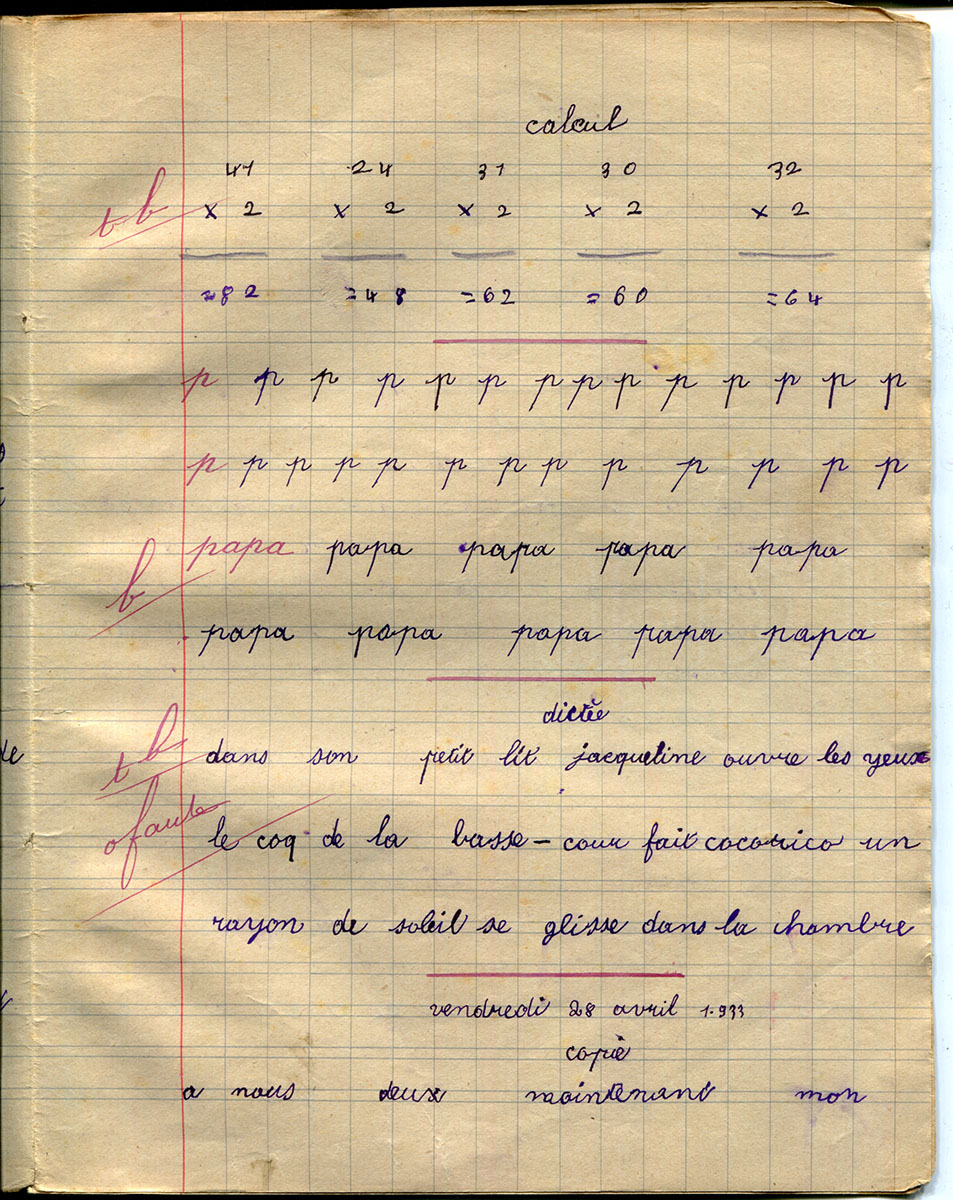 calcul
41 24 31 30 32
tb x 2 x 2 x 2 x 2 x 2
=82 =48 =62 =60 =64
p p p p p p p p p p p p p p
p p p p p p p p p p p p p
papa papa papa papa papa
b
papa papa papa papa papa
dictée
tb dans son petit lit jacqueline ouvre les yeux
0 faute le coq de la basse-cour fait cocorico un
rayon de soleil se glisse dans la chambre
vendredi 28 avril 1.933
copie
a nous deux maintenant mon